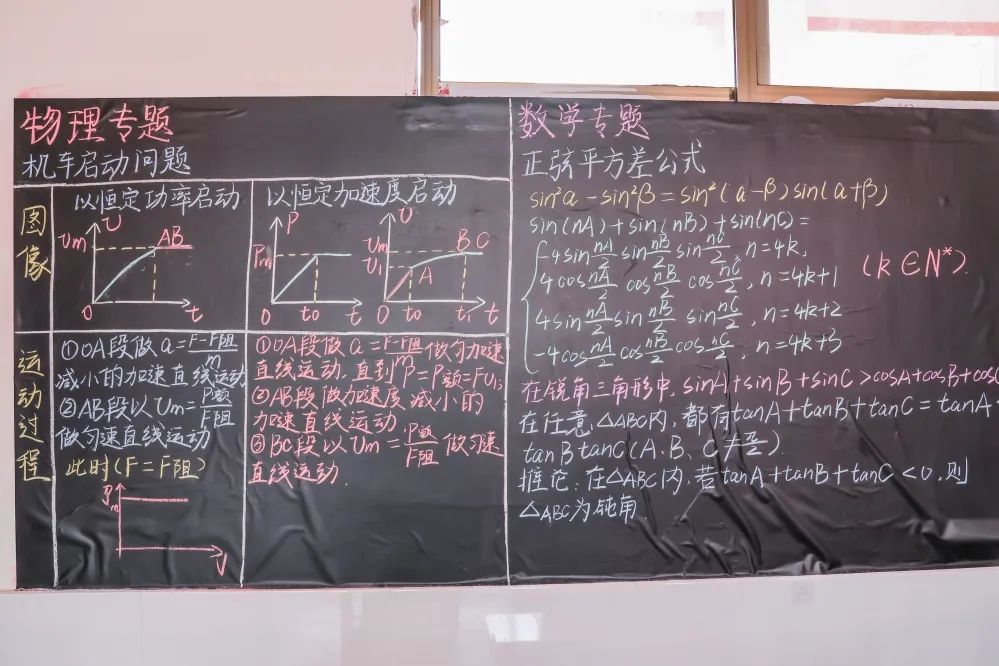 物理专题
机车启动问题
图像
以恒定功率启动
υ
υm
AB
0
t
以恒定加速度启动
P
Pm
0
t₀
t
υ
υm
υ₁
A
B C
0
t₀
t₁
t
运动过程
①OA段做a=F-F阻/m
减小的加速直线运动
②AB段以υm=P额/F阻
做匀速直线运动
此时(F=F阻)
Pm
V
①OA段做a=F-F阻/m做匀加速
直线运动,直到P=P额=Fυ₁;
②AB段做加速度减小的
加速直线运动
③BC段以υm=P额/F阻做匀速
直线运动.
数学专题
正弦平方差公式
sin²α-sin²β=sin²(α-β)sin(α+β)
sin(nA)+sin(nB)+sin(nC)=
{-4sin nA/2 sin nB/2 sin nC/2, n=4k,
4cos nA/2 cos nB/2 cos nC/2, n=4k+1
4sin nA/2 sin nB/2 sin nC/2, n=4k+2
-4cos nA/2 cos nB/2 cos nC/2, n=4k+3
(k∈N*).
在锐角三角形中,sinA+sinB+sinC>cosA+cosB+cos
在任意△ABC内,都有tanA+tanB+tanC=tanA·
tanBtanC(A、B、C≠π/2)
推论:在△ABC内,若tanA+tanB+tanC<0,则
△ABC为钝角